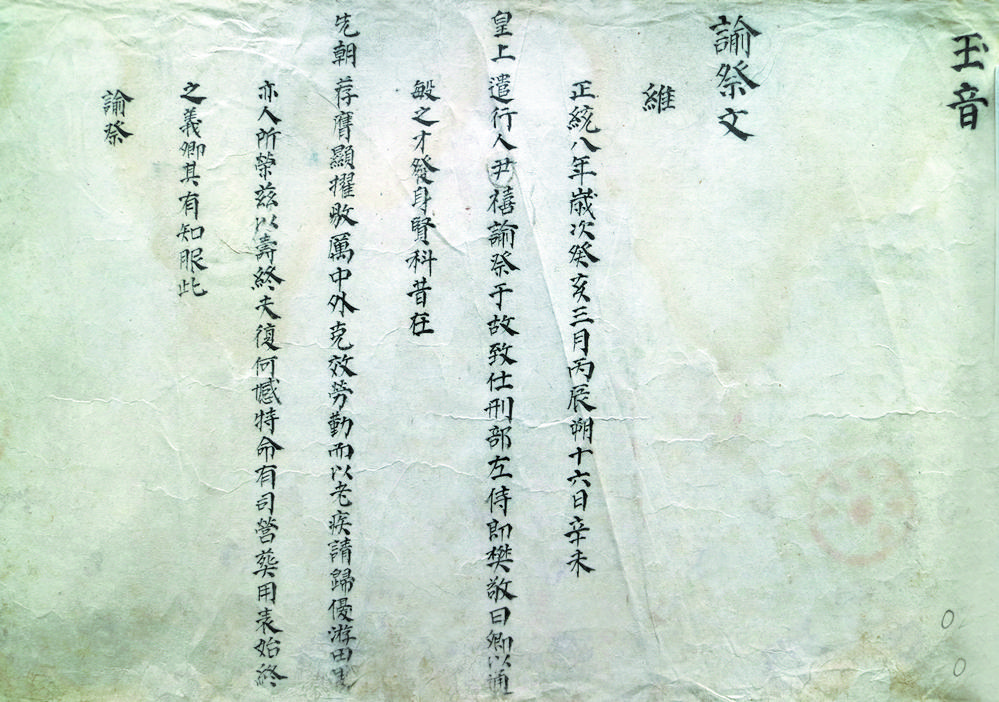 玉音
諭祭文
維
正統八年歲次癸亥三月丙辰朔十六日辛未
皇上遣行人尹禧諭祭于故致仕刑部左侍郎樊敬曰卿以通
敏之才發身賢科昔在
先朝荐膺顯擢敭厲中外克效勞勤而以老疾請歸優游田里
亦人所榮兹以壽終夫復何憾特命有司營葬用表始終
之義卿其有知服此
諭祭